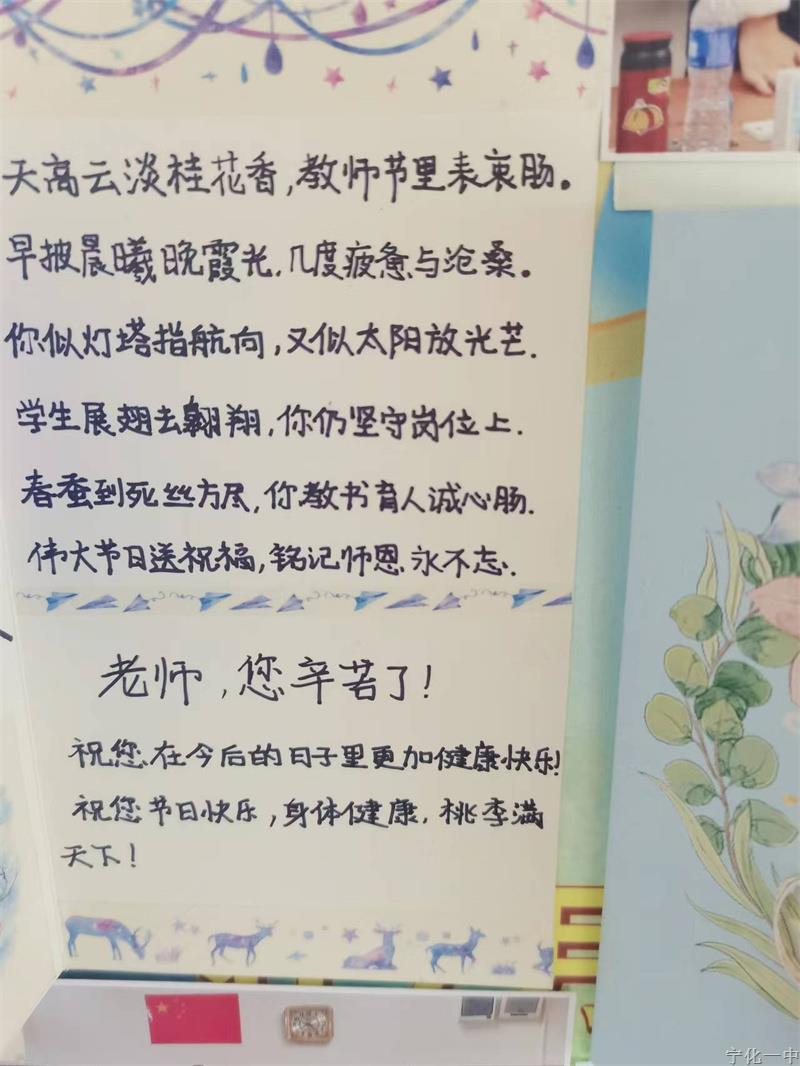 天高云淡桂花香,教师节里表衷肠。
早披晨曦晚霞光,几度疲惫与沧桑。
你似灯塔指航向,又似太阳放光芒.
学生展翅去翱翔,你仍坚守岗位上.
春蚕到死丝方尽,你教书育人诚心肠.
伟大节日送祝福,铭记师恩永不忘.
老师,您辛苦了!
祝您在今后的日子里更加健康快乐!
祝您节日快乐,身体健康,桃李满
天下!
宁化一中